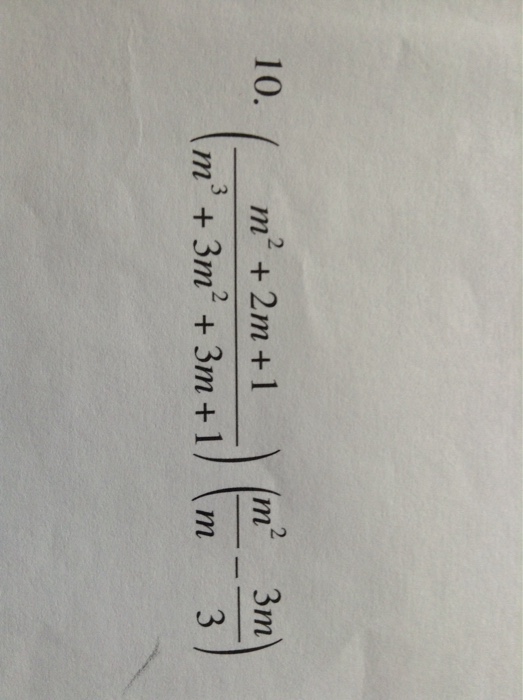 10. (m² + 2m + 1 / m³ + 3m² + 3m + 1) (m² / m − 3m / 3)